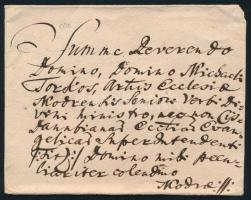 Summe Reverendo
Domino, Domino Michaeli
Torkos, Artis Ecclesiæ
Modrensis Seniori Verbi Di
vini ministro, nec non Cis
Danubianae Evan
gelicae Superintendenti
Domino mihi pecu
liariter colendo
Modræ